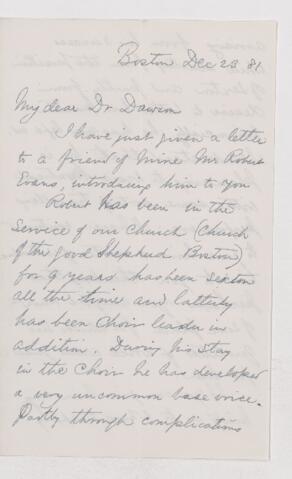 Boston Dec 23 81
My dear Dr Dawson
I have just given a letter
to a friend of mine Mr Robert
Evans, introducing him to you
Robert has been in the
Service of our Church (Church
of the good Shepherd Boston)
for 9 years has been sexton
all the time and latterly
has been Choir leader in
addition. During his stay
in the Choir he has developed
a very uncommon base voice.
Partly through complications